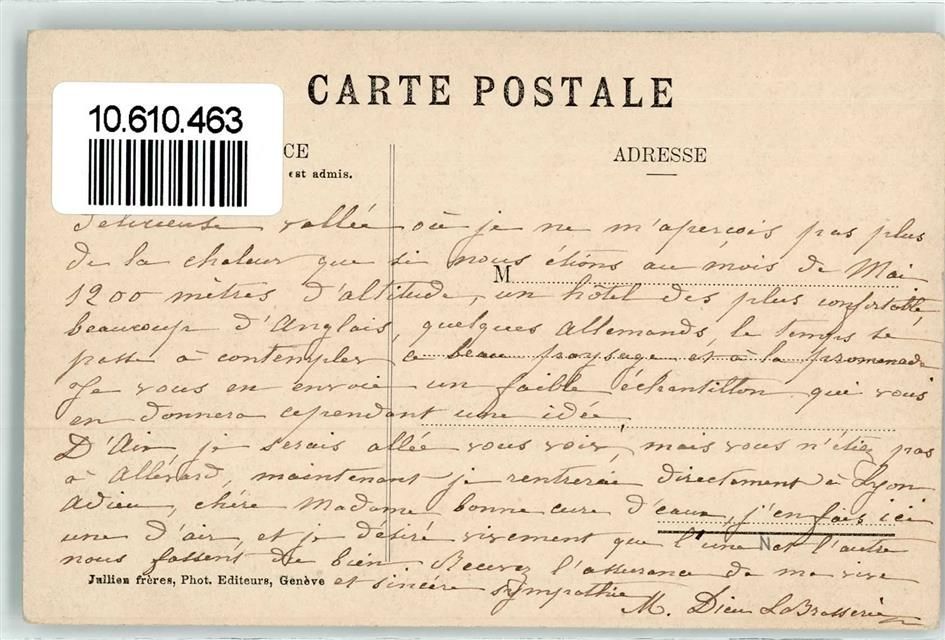 CARTE POSTALE
10.610.463
CE
ADRESSE
est admis.
vallée où je ne m'aperçois pas plus
de la chaleur que si nous étions au mois de Mai
M
1200 mètres d'altitude, un hôtel des plus confortable,
beaucoup d'Anglais, quelques Allemands, le temps se
passe à contempler, a beau paysage et à la promenade
Je vous en envoie un faible échantillon qui vous
en donnera cependant une idée,
je serais allée vous voir, mais vous n'étiez pas
à Allevard, maintenant je rentrerai directement à Lyon
Adieu, chère Madame bonne cure d'eaux, j'en fais ici
une d'air, et je désire vivement que l'une et l'autre
N
nous fassent de bien. Recevez l'assurance de ma vive
Jullien frères, Phot. Editeurs, Genève
et sincère sympathie
M. Dieu